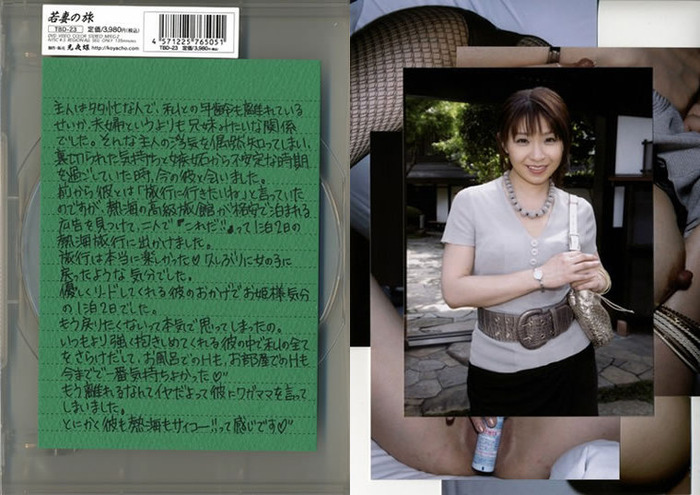 若妻の旅
TBD-23 定価/3,980円(税込)
DVD VIDEO COLOR STEREO MPEG-2
4 571225 765051
TBD-23 定価/3,980円(税込)
http://koyacho.com
主人は多忙な人で、私との年齢も離れている
せいか夫婦というよりも兄妹みたいな関係
でした。そんな主人の浮気を偶然知ってしまい、
裏切られた気持ちと嫉妬から不安定な時期
を過ごしていた時、今の彼と会いました。
前から彼とは「旅行に行きたいね」と言っていた
のですが、熱海の高級旅館が格安で泊まれる
広告を見つけて、二人で"これだ"って1泊2日の
熱海旅行に出かけました。
旅行は本当に楽しかった♡久しぶりに女の子に
戻ったような気分でした。
優しくリードしてくれる彼のおかげでお姫様気分
の1泊2日でした。
もう戻りたくないって本気で思ってしまったの。
いつもより強く抱きしめてくれる彼の中で私の全て
をさらけだして、お風呂でのHも、お部屋でのHも
今までで一番気持ちよかった♡
もう離れるなんてイヤだよって彼にワガママを言って
しまいました。
とにかく彼も熱海もサイコー!!って感じです♡